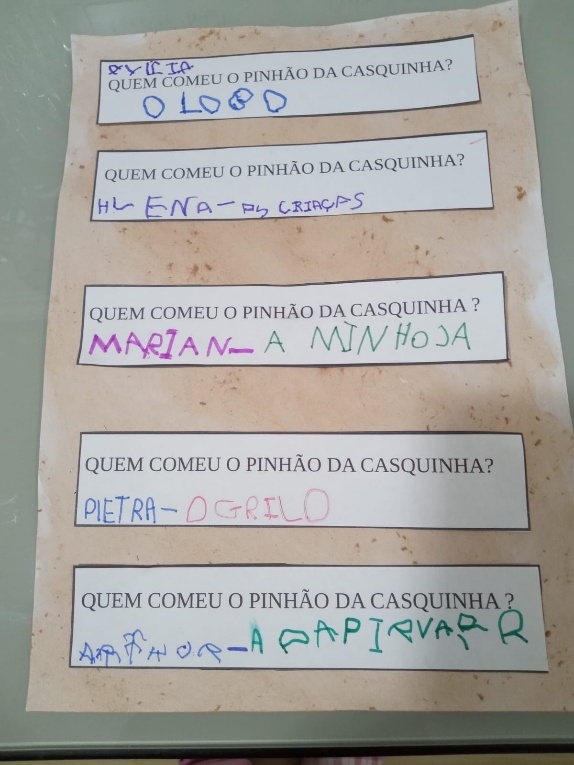 QUEM COMEU O PINHÃO DA CASQUINHA?
O LOBO
QUEM COMEU O PINHÃO DA CASQUINHA?
HLENA - AS CRIAÇAS
QUEM COMEU O PINHÃO DA CASQUINHA ?
MARIAN - A MINHOJA
QUEM COMEU O PINHÃO DA CASQUINHA?
PIETRA - O GRILO
QUEM COMEU O PINHÃO DA CASQUINHA ?
ARTHOR - A